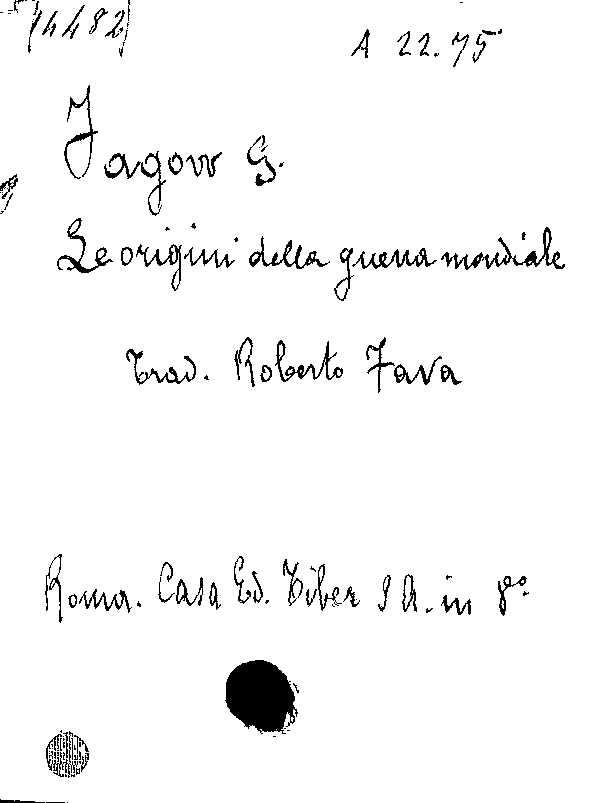 14482
A 22.75
Jagow G.
Le origini della guerra mondiale
Trad. Roberto Fava
Roma. Casa Ed. Tiber S A. in 8º